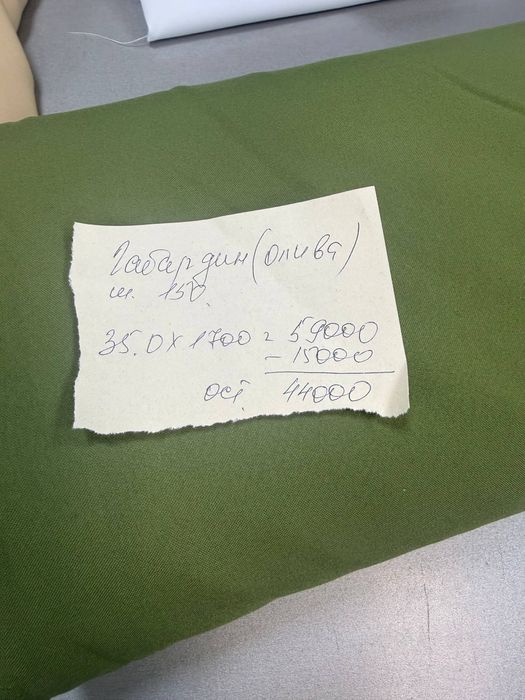 Габардин (олива)
ш. 150
35.0 х 1700 = 59000
- 15000
ост 44000